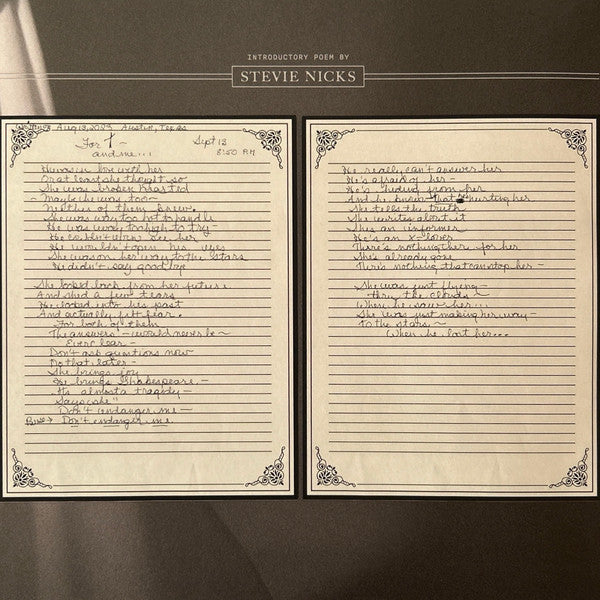 INTRODUCTORY POEM BY
STEVIE NICKS
Written Aug 13, 2023 Austin, Texas
For T –
and me...
Sept 13
8:50 PM
He was in love with her
Or at least she thought so
She was broken hearted
– Maybe he was too –
Neither of them knew
She was way too hot to handle
He was way too high to try –
He couldn't even see her
He wouldn't open his eyes
She was on her way to the stars
He didn't say goodbye
She looked back from her future
And shed a few tears
He looked into his past
And actually felt fear.
For both of them
The answers – would never be ~
Ever clear –
Don't ask questions now
Do that later –
She brings joy
He brings Shakespeare –
It's almost a tragedy –
Says "she"
Don't endanger me –
Don't endanger me
He really can't answer her
He's afraid of her –
He's hiding from her
And he knows that he's hurting her
She tells the truth
She writes about it
She's an informer
He's an x-lover
There's nothing there for her
She's already gone
There's nothing that can stop her –
She was just flying –
thru the clouds –
When he saw her...
She was just making her way –
to the stars ~
When he lost her...